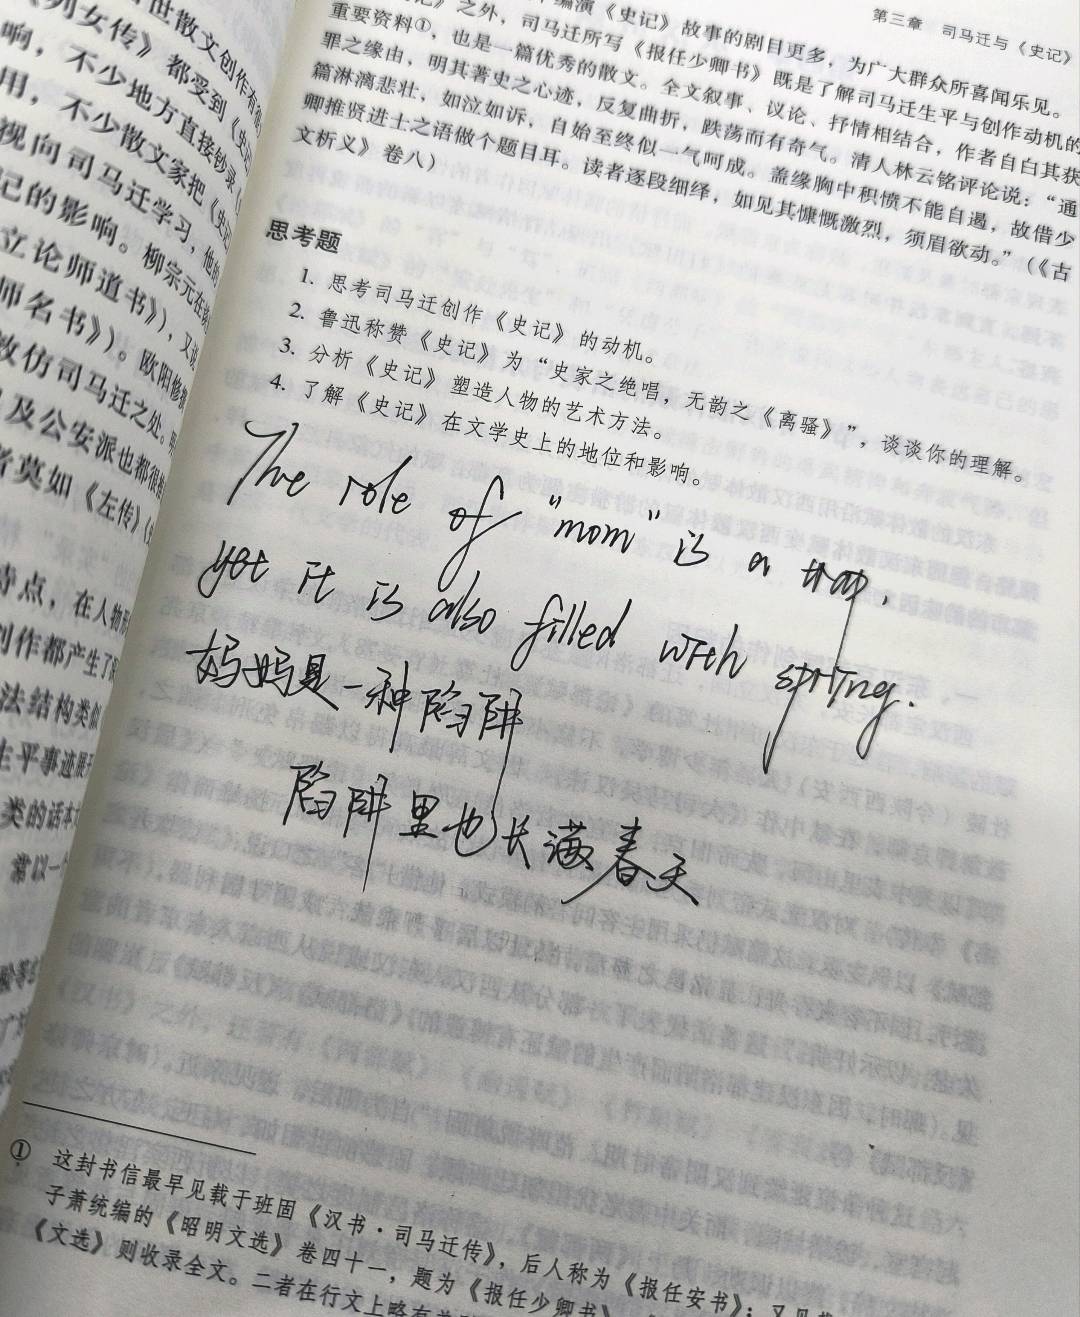 第三章 司马迁与《史记》
编演《史记》故事的剧目更多，为广大群众所喜闻乐见。
》之外，司马迁所写《报任少卿书》既是了解司马迁生平与创作动机的
重要资料①，也是一篇优秀的散文。全文叙事、议论、抒情相结合，作者自白其获
罪之缘由，明其著史之心迹，反复曲折，跌荡而有奇气。清人林云铭评论说：“通
篇淋漓悲壮，如泣如诉，自始至终似一气呵成。盖缘胸中积愤不能自遏，故借少
卿推贤进士之语做个题目耳。读者逐段细绎，如见其慷慨激烈，须眉欲动。”（《古
文析义》卷八）
思考题
1. 思考司马迁创作《史记》的动机。
2. 鲁迅称赞《史记》为“史家之绝唱，无韵之《离骚》”，谈谈你的理解。
3. 分析《史记》塑造人物的艺术方法。
4. 了解《史记》在文学史上的地位和影响。
The role of "mom" is a trap
yet it is also filled with spring.
妈妈是一种陷阱
陷阱里也长满春天
① 这封书信最早见载于班固《汉书·司马迁传》，后人称为《报任安书》；又见
子萧统编的《昭明文选》卷四十一，题为《报任少卿书》
《文选》则收录全文。二者在行文上略有
世散文创作有
《列女传》都受到《史
响，不少地方直接钞录
用，不少散文家把《史记
视向司马迁学习，他的
记的影响。柳宗元在
立论师道书》），又说
师名书》）。欧阳修
效仿司马迁之处。
及公安派也都很
者莫如《左传》
特点，在人物
创作都产生了
法结构类似
生平事迹展
类的话本
常以一